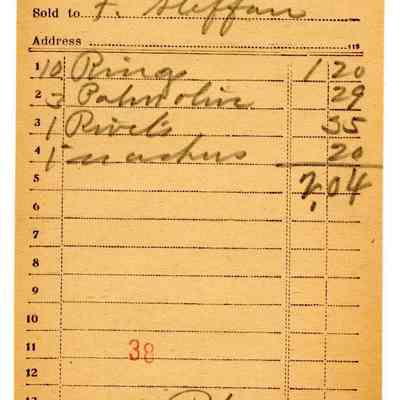 Sold to F. Steffan
Address 115
1 10 Rings 1 20
2 3 Palmolive 29
3 1 Rivets 35
4 1 washers 20
5 2,04
6
7
8
9
10
11 38
12
13